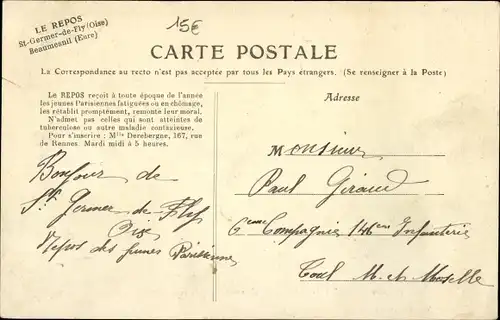 LE REPOS
St-Germer-de-Fly (Oise)
Beaumesnil (Eure)
15€
CARTE POSTALE
La Correspondance au recto n'est pas acceptée par tous les Pays étrangers. (Se renseigner à la Poste)
Le REPOS reçoit à toute époque de l'année
les jeunes Parisiennes fatiguées ou en chômage,
les rétablit promptement, remonte leur moral.
N'admet pas celles qui sont atteintes de
tuberculose ou autre maladie contagieuse.
Pour s'inscrire : Mlle Derebergne, 167, rue
de Rennes. Mardi midi à 5 heures.
Bonjour de
St Germer de Fly
Oise
Repos des jeunes Parisiennes
Adresse
Monsieur
Paul Giraud
6eme Compagnie 146eme Infanterie
Toul M. et Moselle